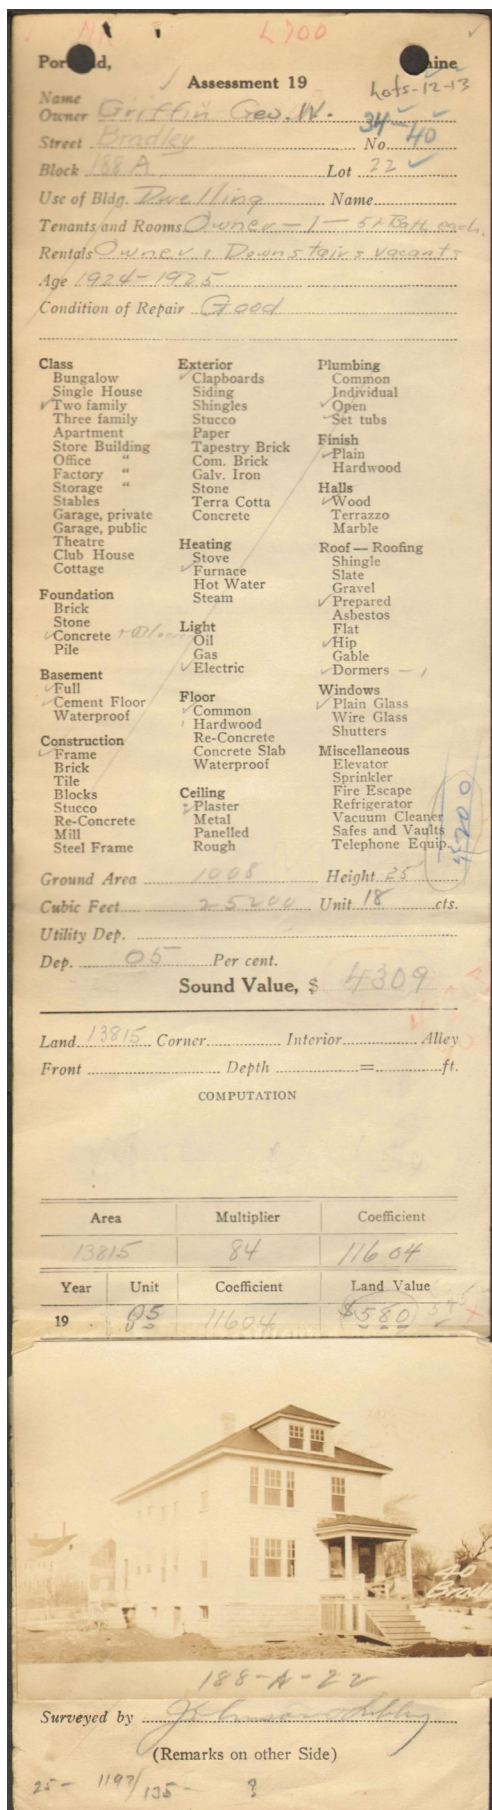 L700
Portland, Maine
Assessment 19
Lots-12-13
Name
Owner Griffin Geo. W.
34-40
Street Bradley No.
Block 188A Lot 22
Use of Bldg. Dwelling Name
Tenants and Rooms Owner-1-5+Bath each.
Rentals Owner. 1 Downstairs vacant
Age 1924-1925
Condition of Repair Good
Class
Bungalow
Single House
✓Two family
Three family
Apartment
Store Building
Office "
Factory "
Storage "
Stables
Garage, private
Garage, public
Theatre
Club House
Cottage
Foundation
Brick
Stone
✓Concrete
Pile
Basement
✓Full
✓Cement Floor
Waterproof
Construction
✓Frame
Brick
Tile
Blocks
Stucco
Re-Concrete
Mill
Steel Frame
Exterior
✓Clapboards
Siding
Shingles
Stucco
Paper
Tapestry Brick
Com. Brick
Galv. Iron
Stone
Terra Cotta
Concrete
Heating
Stove
✓Furnace
Hot Water
Steam
Light
Oil
Gas
✓Electric
Floor
✓Common
Hardwood
Re-Concrete
Concrete Slab
Waterproof
Ceiling
Plaster
Metal
Panelled
Rough
Plumbing
Common
Individual
✓Open
✓Set tubs
Finish
✓Plain
Hardwood
Halls
✓Wood
Terrazzo
Marble
Roof — Roofing
Shingle
Slate
Gravel
✓Prepared
Asbestos
Flat
✓Hip
Gable
✓Dormers - 1
Windows
✓Plain Glass
Wire Glass
Shutters
Miscellaneous
Elevator
Sprinkler
Fire Escape
Refrigerator
Vacuum Cleaner
Safes and Vaults
Telephone Equip.
4200
Ground Area 1008 Height 25
Cubic Feet 25200 Unit 18 cts.
Utility Dep.
Dep. 05 Per cent.
Sound Value, $ 4309
Land 13815 Corner Interior Alley
Front Depth = ft.
COMPUTATION
Area Multiplier Coefficient
13815 84 11604
Year Unit Coefficient Land Value
19 05 11604 $580
40
Bradley
188-A-22
Surveyed by Johnson & Libby
(Remarks on other Side)
25- 1197/135- ?